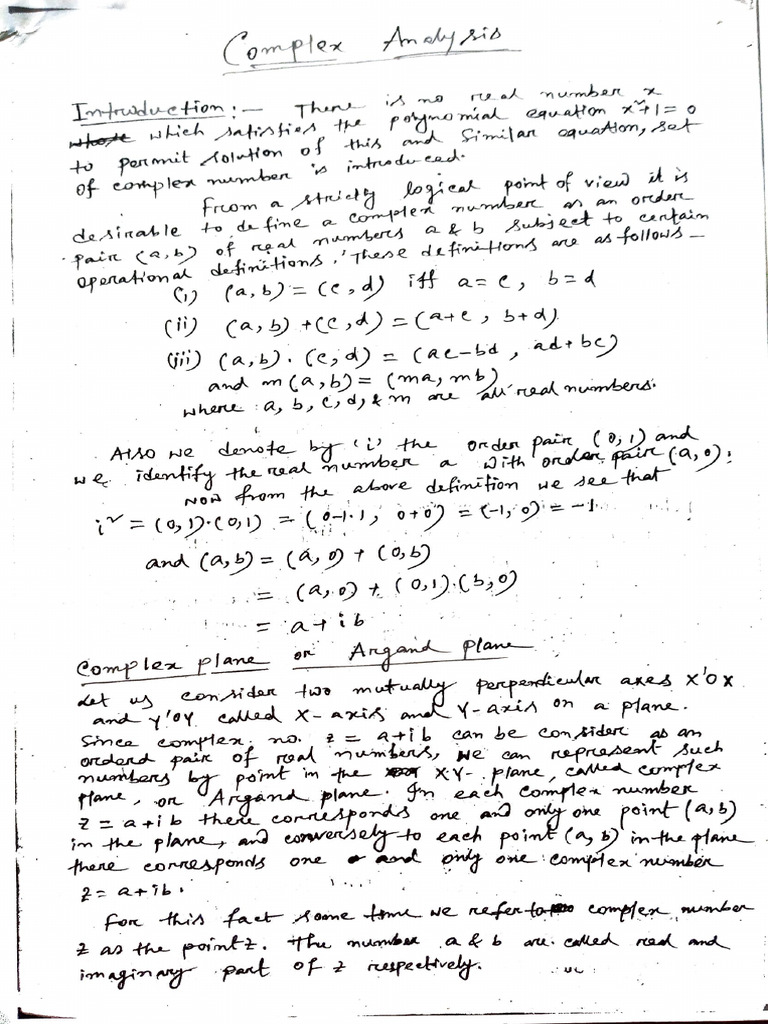 Complex Analysis
Introduction :— There is no real number x
which satisfies the polynomial equation x²+1=0
to permit solution of this and Similar equation, set
of complex number is introduced.
From a strictly logical point of view it is
desirable to define a complex number as an order
pair (a,b) of real numbers a & b subject to certain
operational definitions. These definitions are as follows —
(i) (a,b) = (c,d) iff a=c, b=d
(ii) (a,b) + (c,d) = (a+c, b+d)
(iii) (a,b). (c,d) = (ac-bd, ad+bc)
and m(a,b) = (ma, mb)
where a, b, c, d, & m are all real numbers.
Also we denote by 'i' the order pair (0,1) and
we identify the real number a with order pair (a,0).
Now from the above definition we see that
i² = (0,1).(0,1) = (0-1.1, 0+0) = (-1,0) = -1
and (a,b) = (a,0) + (0,b)
= (a,0) + (0,1).(b,0)
= a+ib
Complex plane or Argand plane
Let us consider two mutually perpendicular axes X'OX
and Y'OY called X-axis and Y-axis on a plane.
Since complex no. z = a+ib can be consider as an
orderd pair of real numbers, we can represent such
numbers by point in the XY- plane, called complex
plane, or Argand plane. In each complex number
z = a+ib there corresponds one and only one point (a,b)
in the plane, and conversely to each point (a,b) in the plane
there corresponds one and only one complex number
z = a+ib.
For this fact some time we refer to complex number
z as the point z. The number a & b are called real and
imaginary part of z respectively.